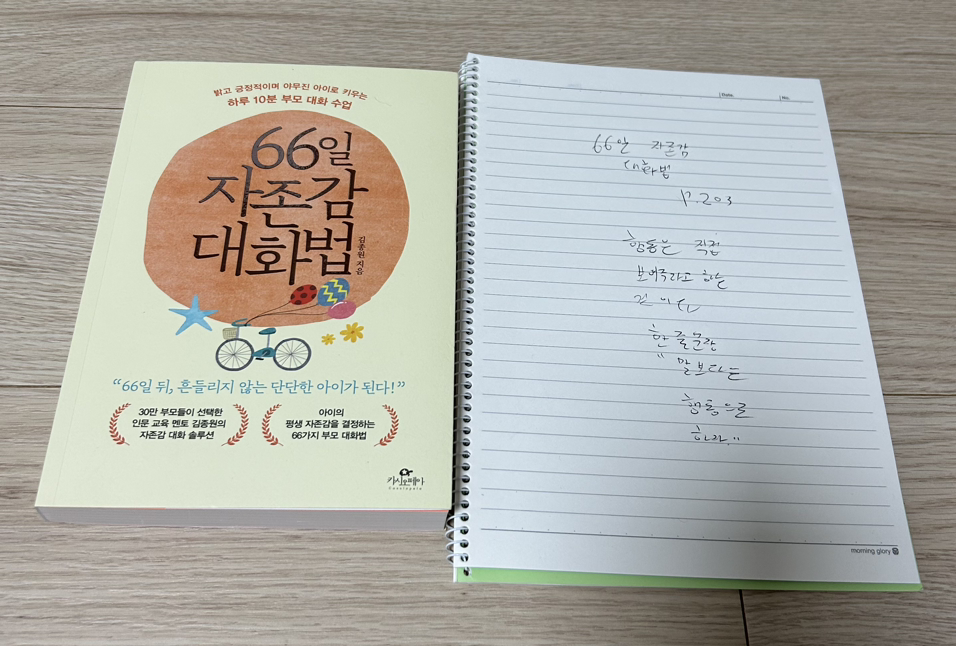 밝고 긍정적이며 야무진 아이로 키우는
하루 10분 부모 대화 수업
66일
자존감
대화법
김종원 지음
“66일 뒤, 흔들리지 않는 단단한 아이가 된다!”
30만 부모들이 선택한
인문 교육 멘토 김종원의
자존감 대화 솔루션
아이의
평생 자존감을 결정하는
66가지 부모 대화법
카시오페아
Cassiopeia
Date.
No.
66일 자존감
대화법
p.203
행동은 직접
보여주라고 하는
것이다
한 줄 문장
"말보다는
행동으로
하라"
morning glory